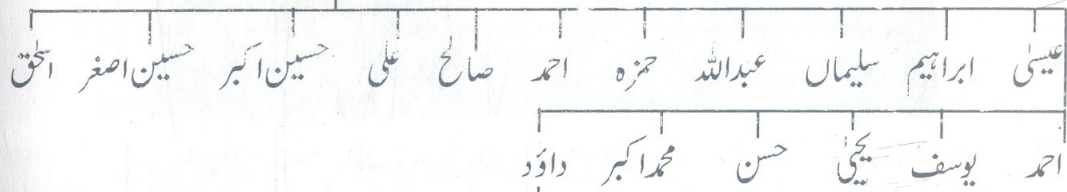 عیسیٰ ابراہیم سلیمان عبداللہ حمزہ احمد صالح علی حسین اکبر حسین اصغر اسحٰق
احمد یوسف یحییٰ حسن محمد اکبر داؤد